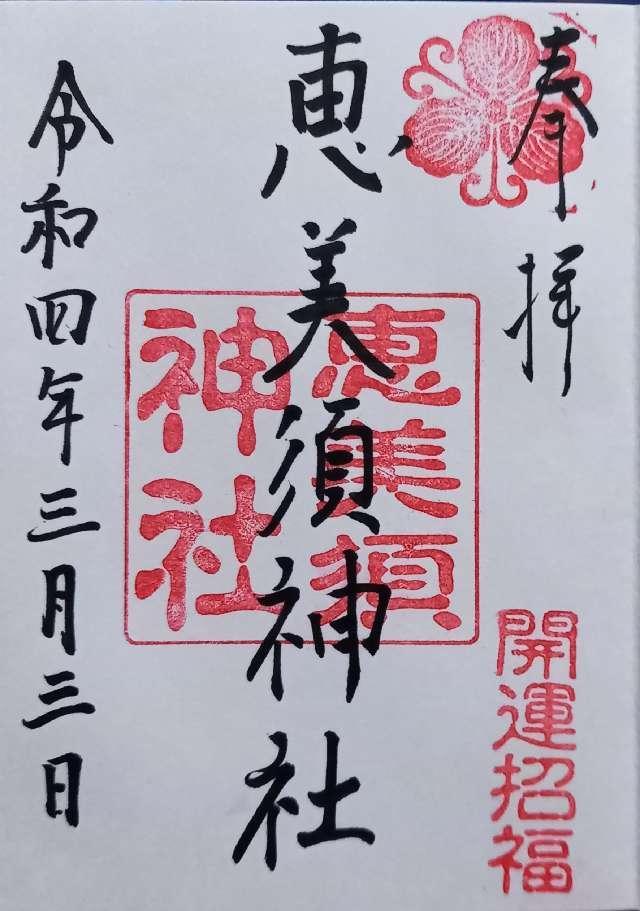 奉拝
開運招福
恵美須神社
恵美須
神社
令和四年三月三日